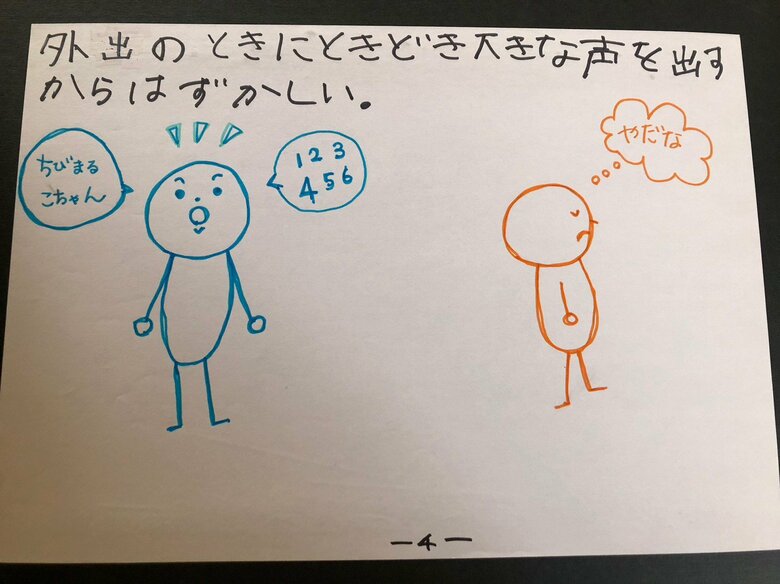 外出のときにときどき大きな声を出す
からはずかしい。
ちびまる
こちゃん
1 2 3
4 5 6
やだな
-4-